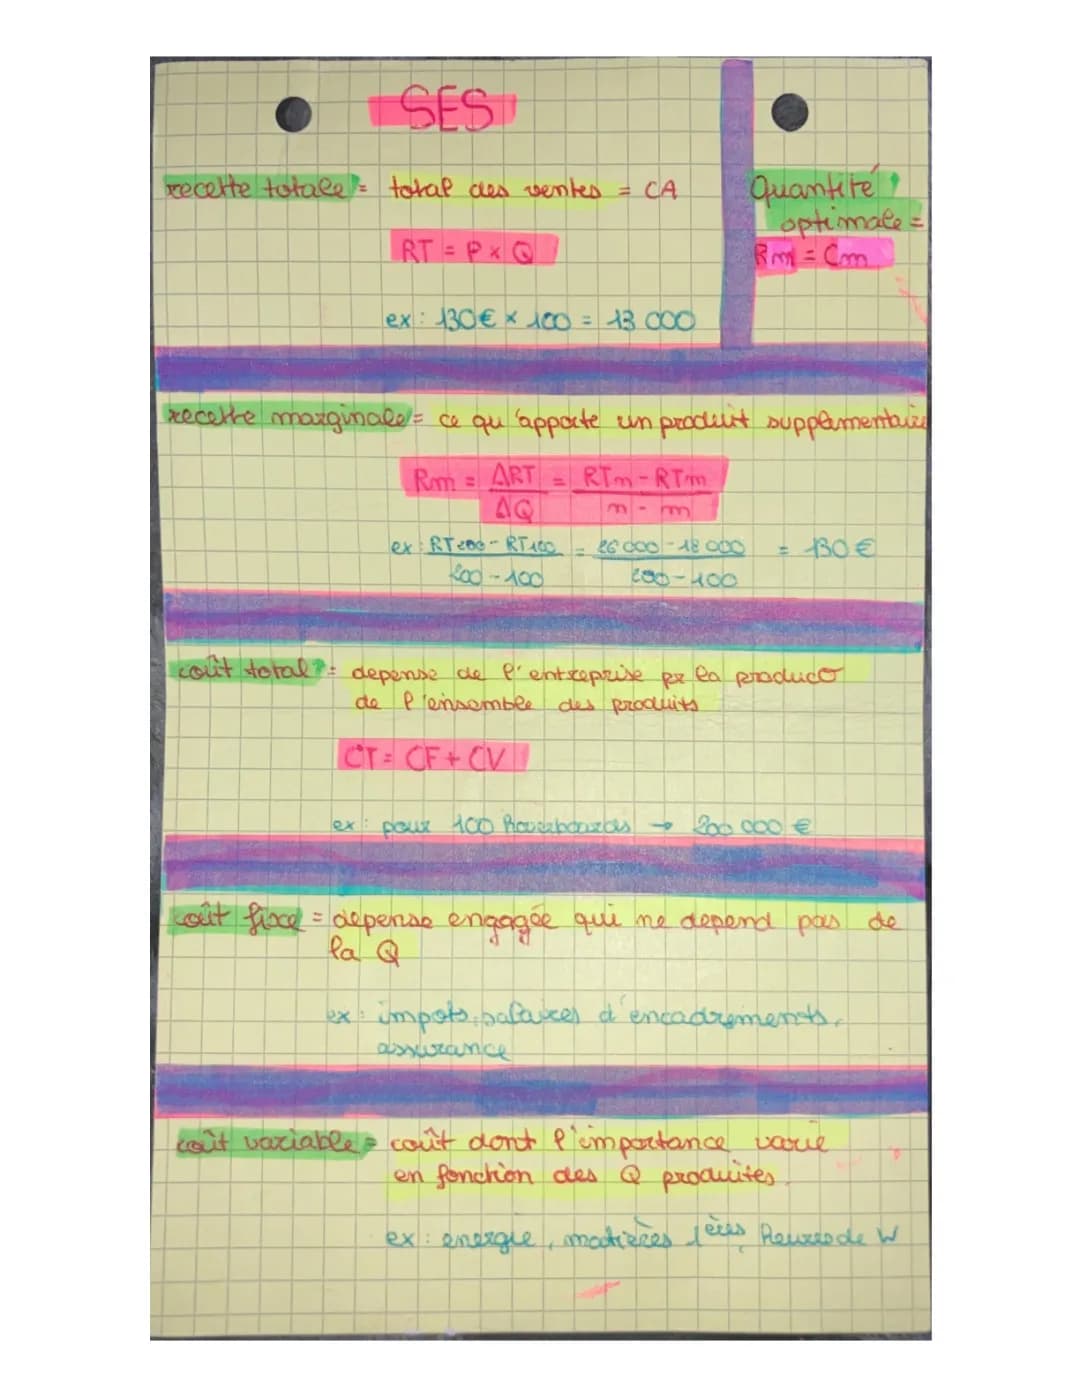 SES
recette totale = total des ventes = CA
RT = P x Q
ex : 130€ x 100 = 13 000
Quantité
optimale =
Rm = Cm
recette marginale = ce qu'apporte un produit supplémentaire
Rm = ΔRT = RTn - RTm
ΔQ n - m
ex : RT200 - RT100 = 26 000 - 18 000 = 130 €
200 - 100 200 - 100
coût total = depense de l'entreprise pr la produco
de l'ensemble des produits
CT = CF + CV
ex : pour 100 hoverboards → 200 000 €
coût fixe = depense engagée qui ne depend pas de
la Q
ex : impots, salaires d'encadrements,
assurance
coût variable = coût dont l'importance varie
en fonction des Q produites.
ex : energie, matières 1ères, heures de W